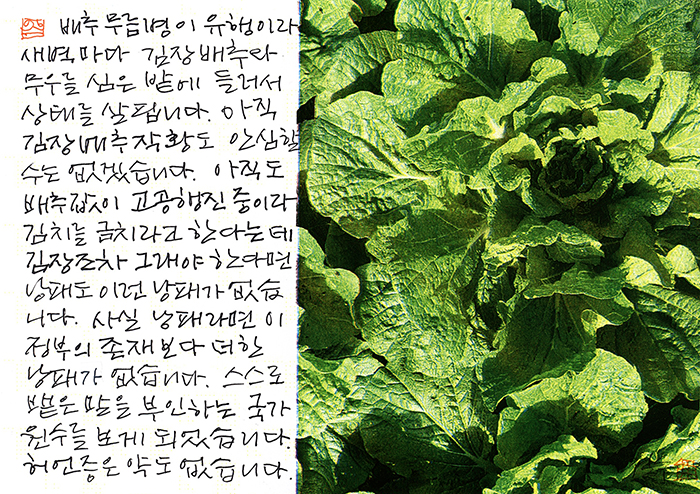 배추 무름병이 유행이라
새벽마다 김장배추와
무우를 심은 밭에 들러서
상태를 살핍니다. 아직
김장배추작황도 안심할
수도 없겠습니다. 아직도
배추값이 고공행진 중이라
김치를 금치라고 한다는데
김장조차 그래야 한다면
낭패도 이런 낭패가 없습
니다. 사실 낭패라면 이
정부의 존재보다 더한
낭패가 없습니다. 스스로
뱉은 말을 부인하는 국가
원수를 보게 되었습니다.
허언증은 약도 없습니다.